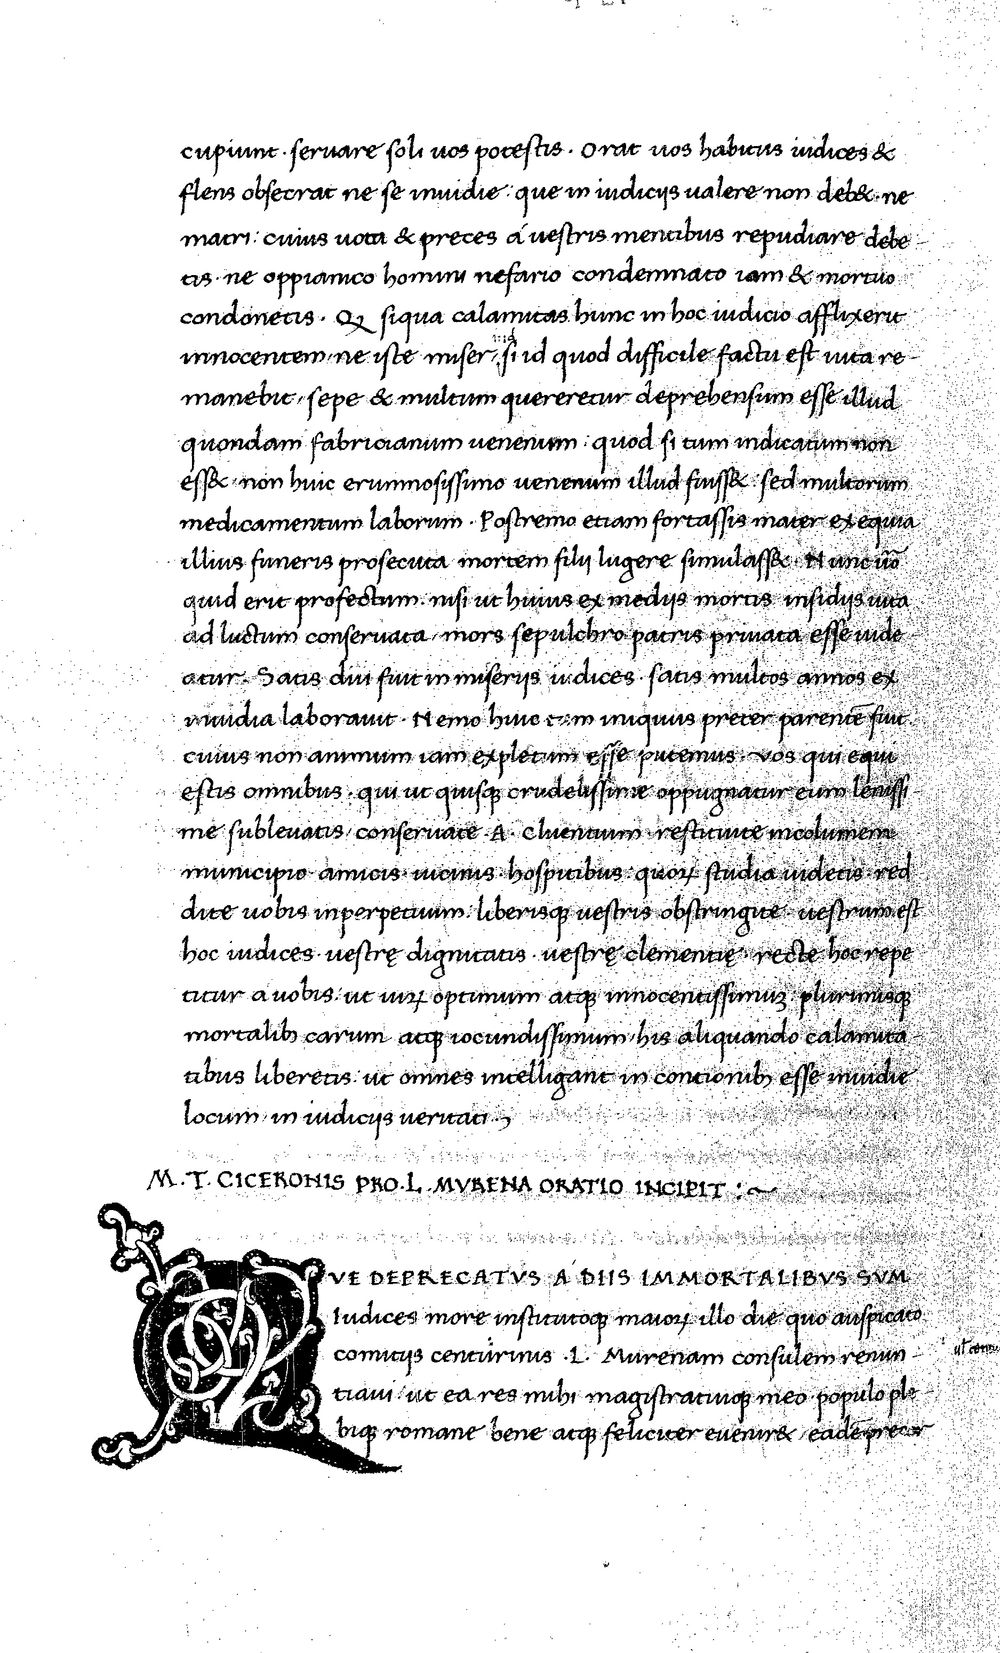 cupiunt · seruare soli uos potestis · Orat uos habitus iudices &
flens obsecrat ne se inuidie : que in iudicijs ualere non deb& · ne
matri : cuius uota & preces á uestris mentibus repudiare debe
tis · ne oppianico homini nefario condemnato iam & mortuo
condonetis · Q siqua calamitas hunc in hoc iudicio afflixerit
innocentem / ne iste miser / si id quod difficile factu est uita re
manebit / sepe & multum quereretur deprehensum esse illud
quondam fabricianum uenenum : quod si tum indicatum non
ess& · non huic erumnosissimo uenenum illud fuiss& · sed multorum
medicamentum laborum · Postremo etiam fortassis mater exequia
illius funeris prosecuta mortem filij lugere simulass& · Nunc uo
quid erit profectum · nisi ut huius ex medijs mortis insidijs uita
ad luctum conseruata / mors sepulchro patris priuata esse uide
atur · Satis diu fuit in miserijs iudices · satis multos annos ex
inuidia laborauit · Nemo huic tam iniquus preter parentē fuit
cuius non animum iam expletum esse putemus · Vos qui equi
estis omnibus · qui ut quisq crudelissime oppugnatur eum lenissi
me subleuatis / conseruate A · Cluentium restituite incolumem
municipio amicis · uicinis · hospitibus : quoꝝ studia uidetis · red
dite uobis inperpetuum · liberisq uestris obstringite · uestrum est
hoc iudices · uestrę dignitatis · uestrę clementię · recte hoc repe
titur a uobis : ut uiꝝ optimum atq innocentissimuꝫ plurimisq
mortalibꝫ carum atq iocundissimum his aliquando calamita
tibus liberetis : ut omnes intelligant in contionibꝫ esse inuidie
locum / in iudicijs ueritati ·,
M · T · CICERONIS PRO · L · MVRENA ORATIO INCIPIT : ~
QVE DEPRECATVS A DIIS IMMORTALIBVS SVM
Iudices more institutoq maioꝝ illo die quo auspicato
comitijs centurinus · L · Murenam consulem renun
tiaui : ut ea res mihi magistratuiq meo populo ple
biq romane bene atq feliciter euenir& / eadē precor